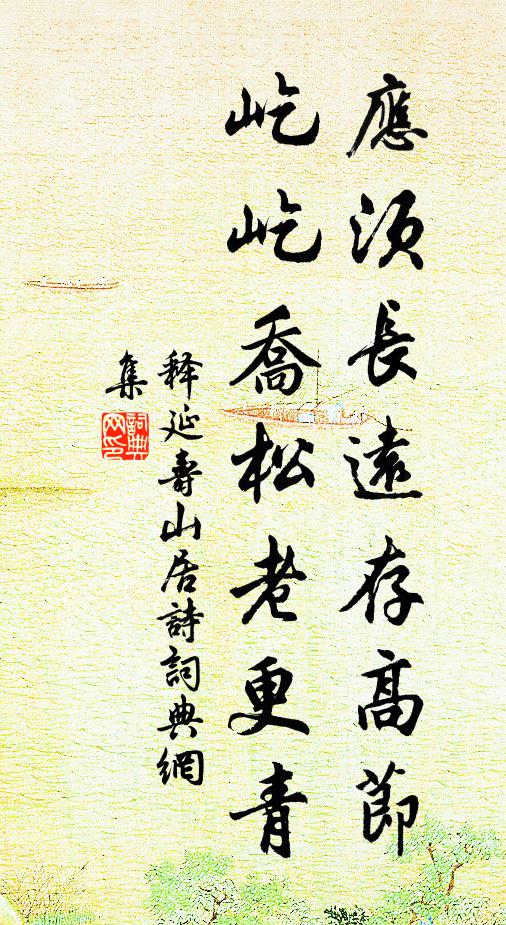 應須長遠存高節
屹屹喬松老更青
釋延壽山居詩詞典網
集
詞典
网印